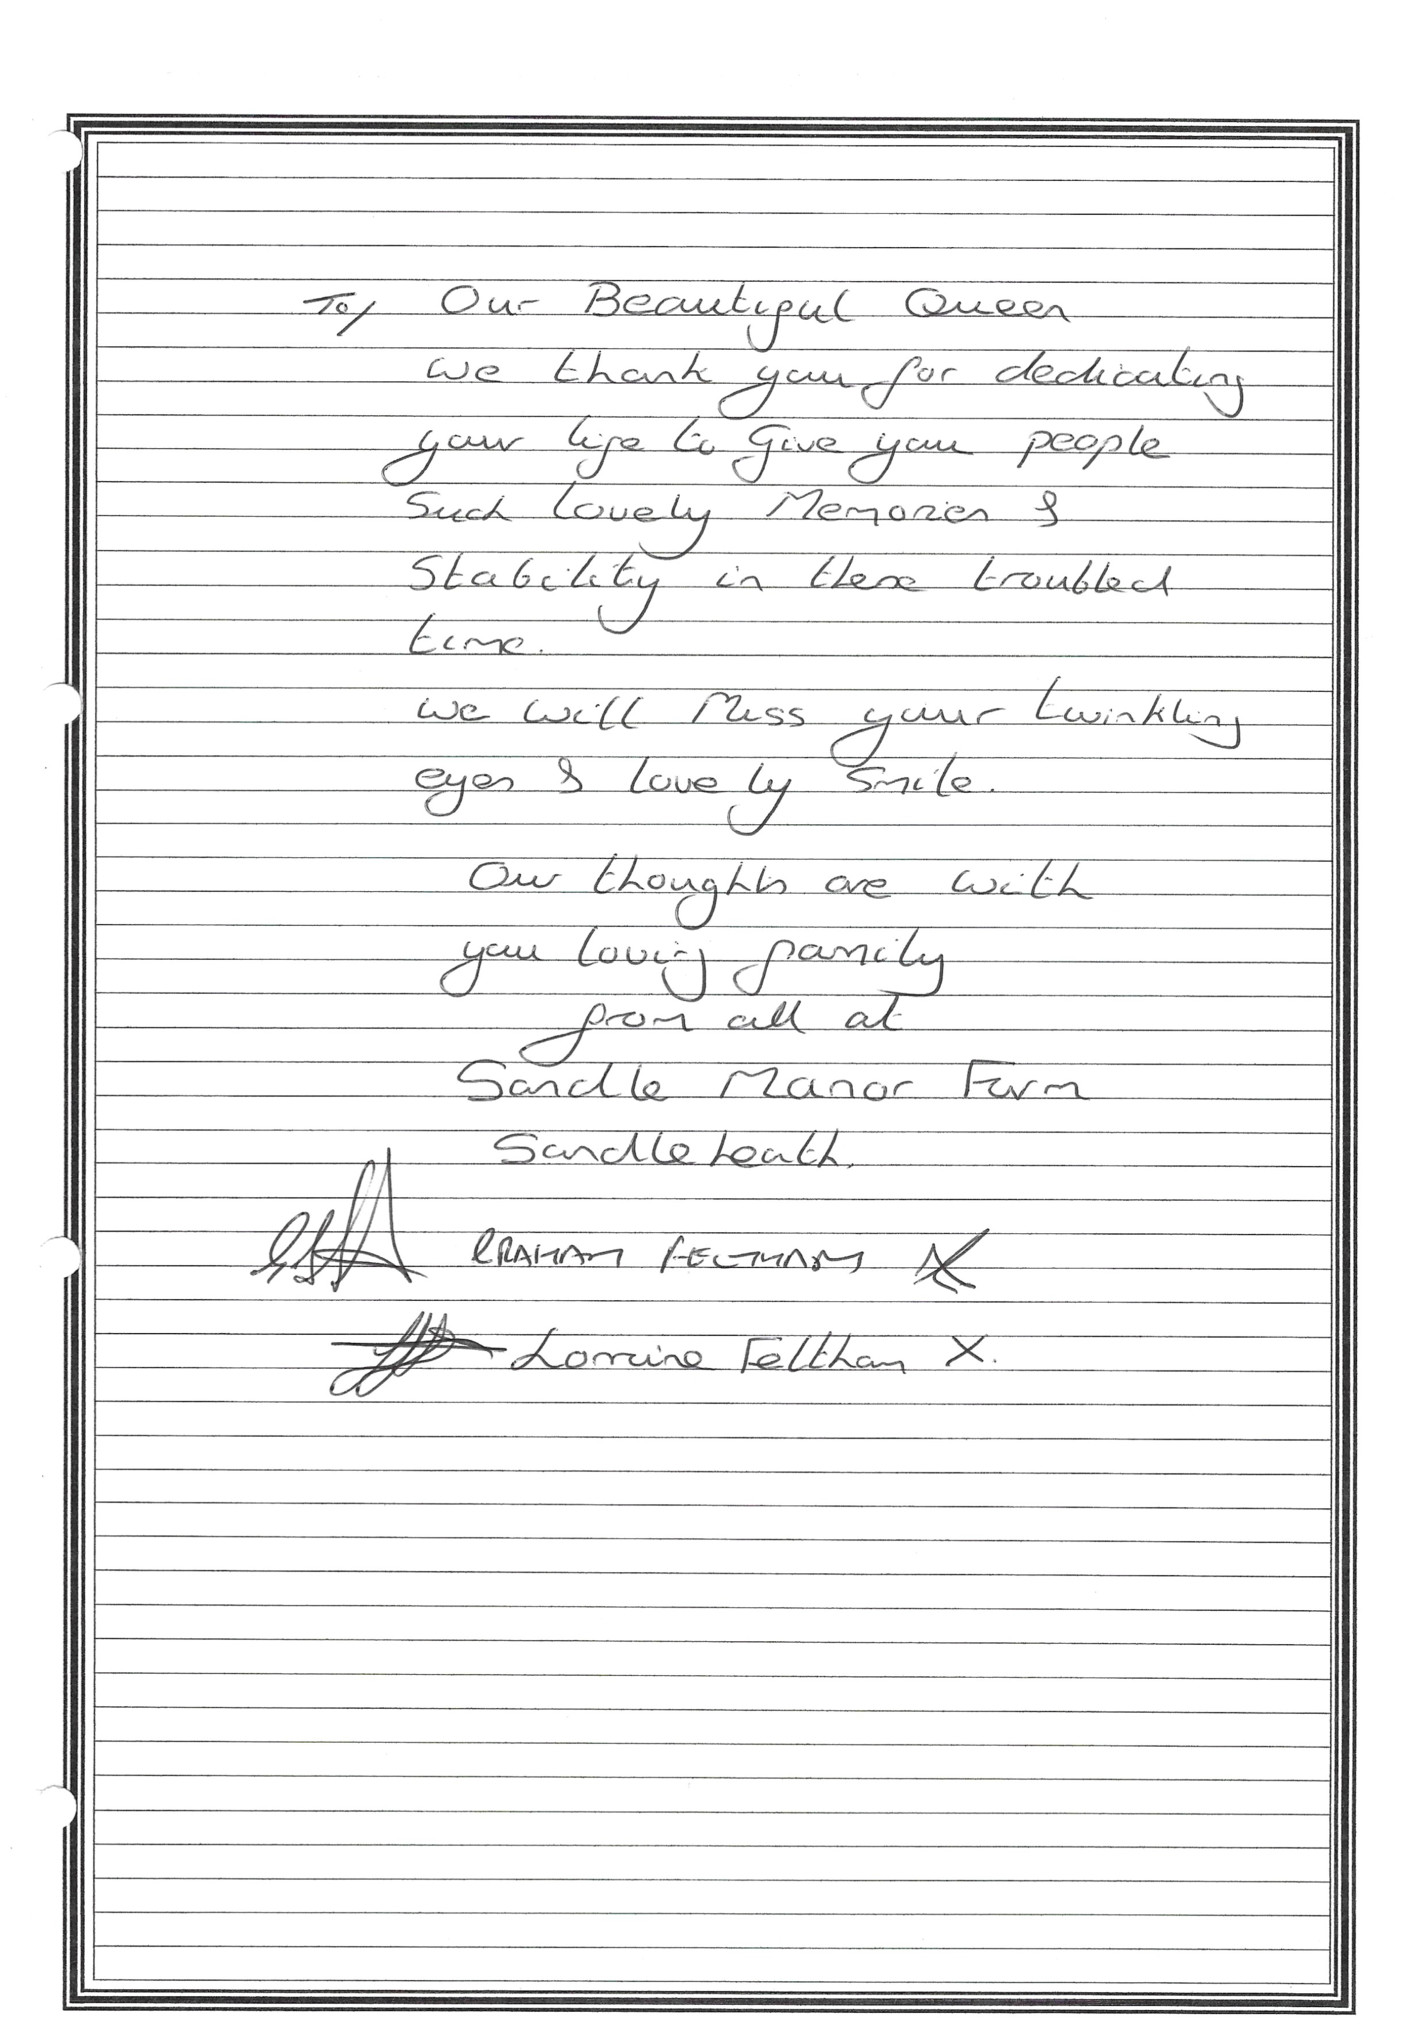 To/ Our Beautiful Queen
we thank you for dedicating
your life to Give you people
Such Lovely Memories &
Stability in these troubled
time.
we will Miss your twinkling
eyes & lovely Smile.
Our thoughts are with
you loving family
from all at
Sandle Manor Farm
Sandleheath.
GRAHAM FELTHAM X
Lorraine Feltham X.